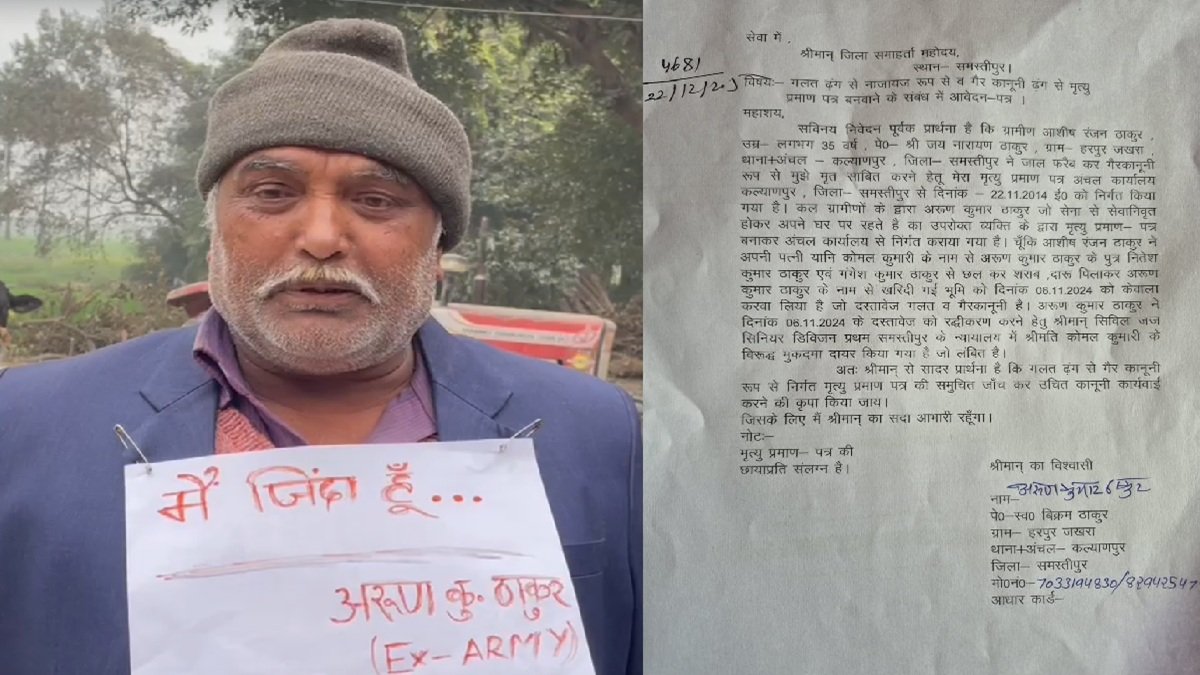 मैं जिंदा हूँ...
अरूण कु. ठाकुर
(Ex-ARMY)
सेवा में ,
श्रीमान् जिला समाहर्ता महोदय,
स्थान– समस्तीपुर।
4681
22/12/25
विषयः– गलत ढ़ंग से नाजायज रूप से व गैर कानूनी ढंग से मृत्यु
प्रमाण पत्र बनवाने के संबंध में आवेदन–पत्र ।
महाशय,
सविनय निवेदन पूर्वक प्रार्थना है कि ग्रामीण आशीष रंजन ठाकुर ,
उम्र– लगभग 35 वर्ष , पे०– श्री जय नारायण ठाकुर , ग्राम– हरपुर जखरा ,
थाना+अंचल – कल्याणपुर , जिला– समस्तीपुर ने जाल फरैब कर गैरकानूनी
रूप से मुझे मृत साबित करने हेतू मेरा मृत्यु प्रमाण पत्र अंचल कार्यालय
कल्याणपुर , जिला– समस्तीपुर से दिनांक – 22.11.2014 ई0 को निर्गत किया
गया है। कल ग्रामीणों के द्वारा अरूण कुमार ठाकुर जो सेना से सेवानिवृत
होकर अपने घर पर रहते है का उपरोक्त व्यक्ति के द्वारा मृत्यु प्रमाण– पत्र
बनाकर अंचल कार्यालय से निर्गत कराया गया है। चूँकि आशीष रंजन ठाकुर ने
अपनी पत्नी यानि कोमल कुमारी के नाम से अरूण कुमार ठाकुर के पुत्र नितेश
कुमार ठाकुर एवं गंगेश कुमार ठाकुर से छल कर शराब ,दारू पिलाकर अरूण
कुमार ठाकुर के नाम से खरिदी गई भूमि को दिनांक 06.11.2024 को केवाला
करवा लिया है जो दस्तावेज गलत व गैरकानूनी है। अरूण कुमार ठाकुर ने
दिनांक 06.11.2024 के दस्तावेज को रद्दीकरण करने हेतु श्रीमान् सिविल जज
सिनियर डिविजन प्रथम समस्तीपुर के न्यायालय में श्रीमति कोमल कुमारी के
विरूद्ध मुकदमा दायर किया गया है जो लंबित है।
अतः श्रीमान् से सादर प्रार्थना है कि गलत ढ़ंग से गैर कानूनी
रूप से निर्गत मृत्यु प्रमाण पत्र की समुचित जाँच कर उचित कानूनी कार्यवाई
करने की कृपा किया जाय।
जिसके लिए मैं श्रीमान् का सदा आभारी रहूँगा।
नोटः–
मृत्यु प्रमाण– पत्र की
छायाप्रति संलग्न है।
श्रीमान् का विश्वासी
अरूण कुमार ठाकुर
नाम–
पे0–स्व0 बिक्रम ठाकुर
ग्राम– हरपुर जखरा
थाना+अंचल– कल्याणपुर
जिला – समस्तीपुर
मो0नं0–7033194830/82942547
आधार कार्ड–